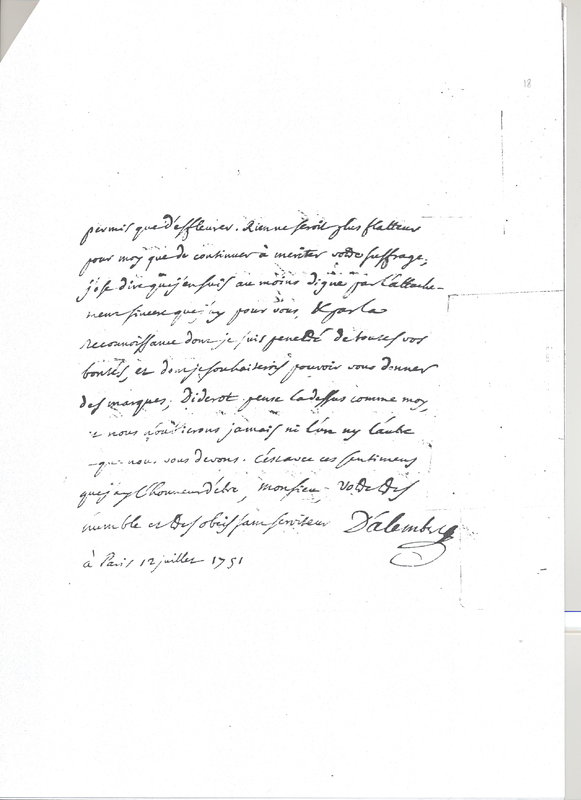 18
permis que d'effleurer. Rien ne seroit plus flatteur
pour moy que de continuer à meriter votre suffrage,
j'ose dire que j'en suis au moins digne par l'attache-
ment sincere que j'ay pour vous, & par la
reconnoissance dont je suis penetré de toutes vos
bontés, et dont je souhaiterois pouvoir vous donner
des marques, Diderot pense la dessus comme moy,
et nous n'oublierons jamais ni l'un ny l'autre
que nous vous devons. C'est avec ces sentimens
que j'ay l'honneur d'etre, monsieur, votre tres
humble et tres obeissant serviteur D'alembert
à Paris 12 juillet 1751